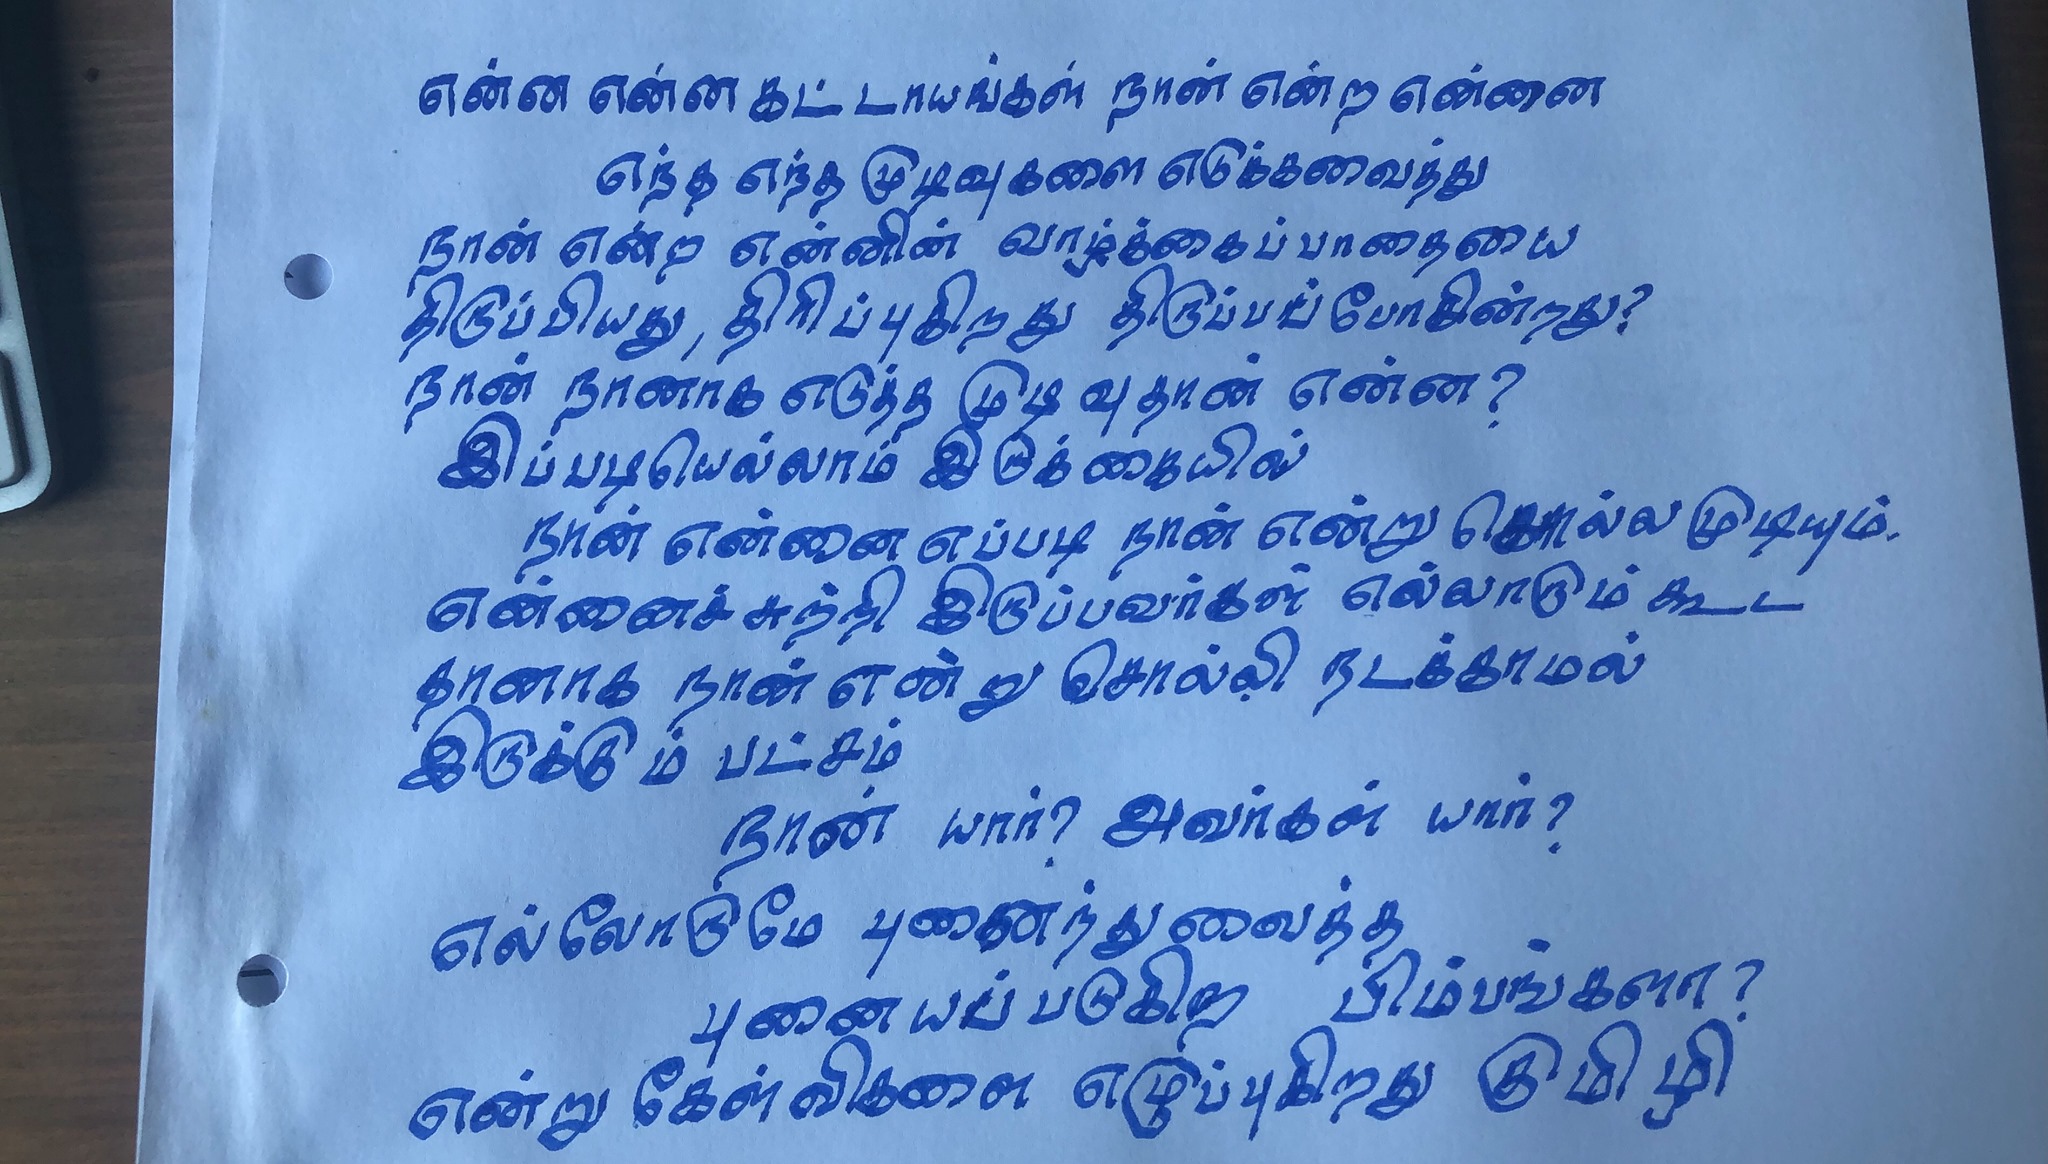 என்ன என்ன கட்டாயங்கள் நான் என்ற என்னை
எந்த எந்த முடிவுகளை எடுக்கவைத்து
நான் என்ற என்னின் வாழ்க்கைப்பாதையை
திருப்பியது, திருப்புகிறது திருப்பப்போகின்றது?
நான் நானாக எடுத்த முடிவுதான் என்ன?
இப்படியெல்லாம் இருக்கையில்
நான் என்னை எப்படி நான் என்று சொல்ல முடியும்.
என்னைச்சுற்றி இருப்பவர்கள் எல்லாரும் கூட
தானாக நான் என்று சொல்லி நடக்காமல்
இருக்கும் பட்சம்
நான் யார்? அவர்கள் யார்?
எல்லோருமே புனைந்துவைத்த
புனையப்படுகிற பிம்பங்களா?
என்று கேள்விகளை எழுப்புகிறது குமிழி